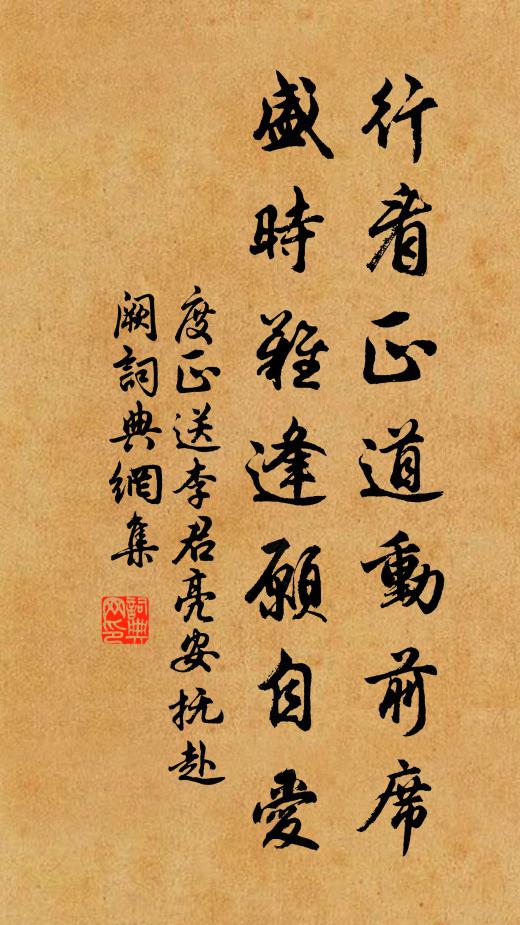 行看正道動前席
盛時難逢願自愛
度正送李君亮安抚赴
阙詞典網集
詞典
网印